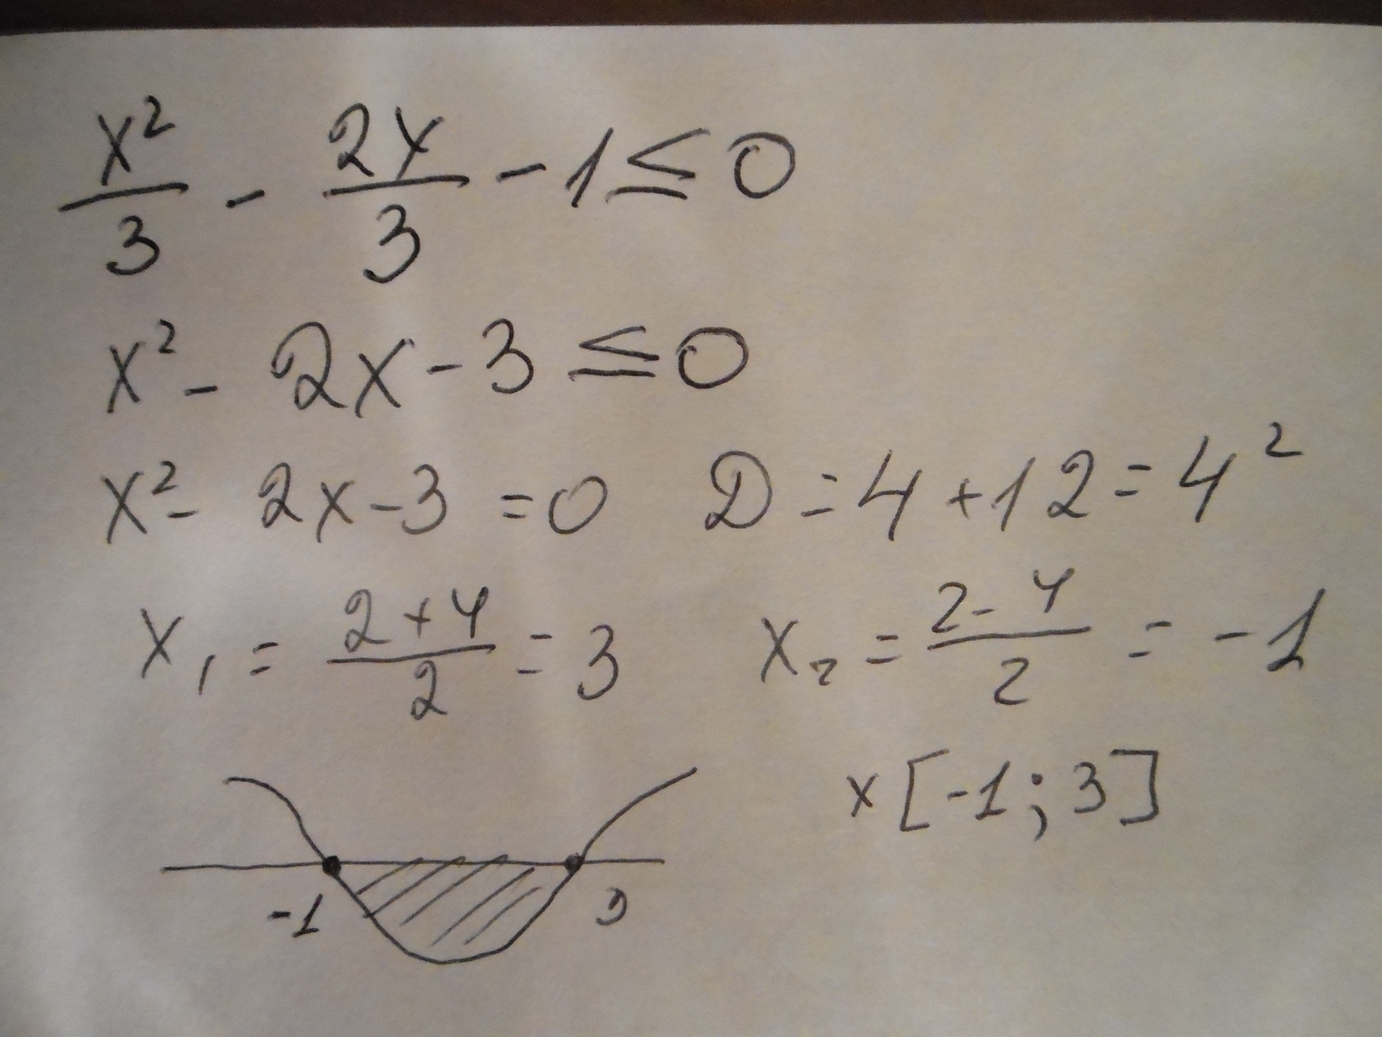 x²/3 - 2x/3 - 1 ≤ 0
x² - 2x - 3 ≤ 0
x² - 2x - 3 = 0 D = 4 + 12 = 4²
x₁ = (2+4)/2 = 3 x₂ = (2-4)/2 = -1
x [-1; 3]
-1 3